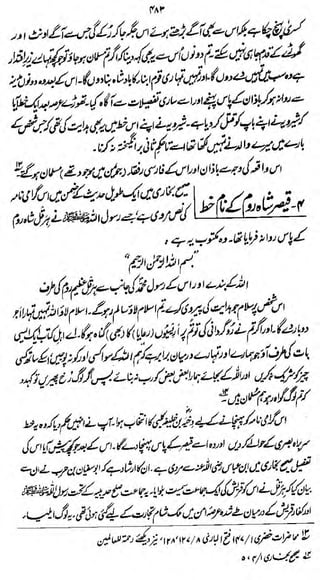 ۴۸۳
کسریٰ پہنچ چکا ہے بلکہ اس سے بھی آگے بڑھتے ہوئے اس جگہ جا کر رُکے گی جس سے آگے اونٹ اور
گھوڑے کے قدم جا ہی نہیں سکتے۔ تم دونوں اس سے یہ بھی کہہ دینا کہ اگر تم مسلمان ہو جاؤ تو جو کچھ تمہارے زیر اقتدار
ہے وہ سب میں تمہیں دے دوں گا۔ اور تمہیں تمہاری قوم ابناء کا بادشاہ بنا دوں گا۔ اس کے بعد وہ دونوں مدینہ
سے روانہ ہو کر باذان کے پاس پہنچے اور اسے ساری تفصیلات سے آگاہ کیا۔ تھوڑے عرصہ بعد ایک خط آیا
کہ شیرویہ نے اپنے باپ کو قتل کر دیا ہے۔ شیرویہ نے اپنے اس خط میں یہ بھی ہدایت کی تھی کہ جس شخص کے
بارے میں میرے والد نے تمہیں لکھا تھا اسے تا حکم ثانی برانگیختہ نہ کرنا۔
اس واقعہ کی وجہ سے باذان اور اس کے فارسی رفقاء (جو یمن میں موجود تھے) مسلمان ہو گئے
۴۔ قیصر شاہ روم کے نام خط
صحیح بخاری میں ایک طویل حدیث کے ضمن میں اس گرامی نامہ
کی نص مروی ہے، جسے رسول اللہ ﷺ نے ہرقل شاہ روم
کے پاس روانہ فرمایا تھا۔ وہ مکتوب یہ ہے:
بسم اللہ الرحمٰن الرحیم
اللہ کے بندے اور اس کے رسول محمد کی جانب سے ہرقل عظیم روم کی طرف
اس شخص پر سلام جو ہدایت کی پیروی کرے۔ تم اسلام لاؤ سالم رہو گے۔ اسلام لاؤ اللہ تمہیں تمہارا اجر
دو بار دے گا۔ اور اگر تم نے رُوگردانی کی تو تم پر اریسیوں (رعایا) کا (بھی) گناہ ہوگا۔ اے اہل کتاب! ایک ایسی
بات کی طرف آؤ جو ہمارے اور تمہارے درمیان برابر ہے کہ ہم اللہ کے سوا کسی اور کو نہ پوجیں، اس کے ساتھ کسی
چیز کو شریک نہ کریں اور اللہ کے بجائے ہمارا بعض بعض کو رب نہ بنائے۔ پس اگر لوگ رُخ پھیریں تو کہہ دو
کہ تم لوگ گواہ رہو ہم مسلمان ہیں۔
اس گرامی نامہ کو پہنچانے کے لیے دحیہ بن خلیفہ کلبی کا انتخاب ہوا۔ آپ نے انہیں حکم دیا کہ وہ یہ خط
سربراہ بصریٰ کے حوالے کر دیں اور وہ اسے قیصر کے پاس پہنچا دے گا۔ اس کے بعد جو کچھ پیش آیا اس کی
تفصیل صحیح بخاری میں ابن عباس رضی اللہ عنہ سے مروی ہے۔ ان کا ارشاد ہے کہ ابوسفیان بن حرب نے ان سے
بیان کیا کہ ہرقل نے اس کو قریش کی ایک جماعت سمیت بلوایا۔ یہ جماعت صلح حدیبیہ کے تحت رسول اللہ ﷺ
اور کفار قریش کے درمیان طے شدہ عرصۂ امن میں ملک شام تجارت کے لیے گئی ہوئی تھی۔ یہ لوگ ایلیاء۔
محاضرات خضری ۱/۱۴۷ فتح الباری ۸/۱۲۷، ۱۲۸ نیز دیکھئے رحمۃ للعالمین
صحیح بخاری ۱/۴، ۵